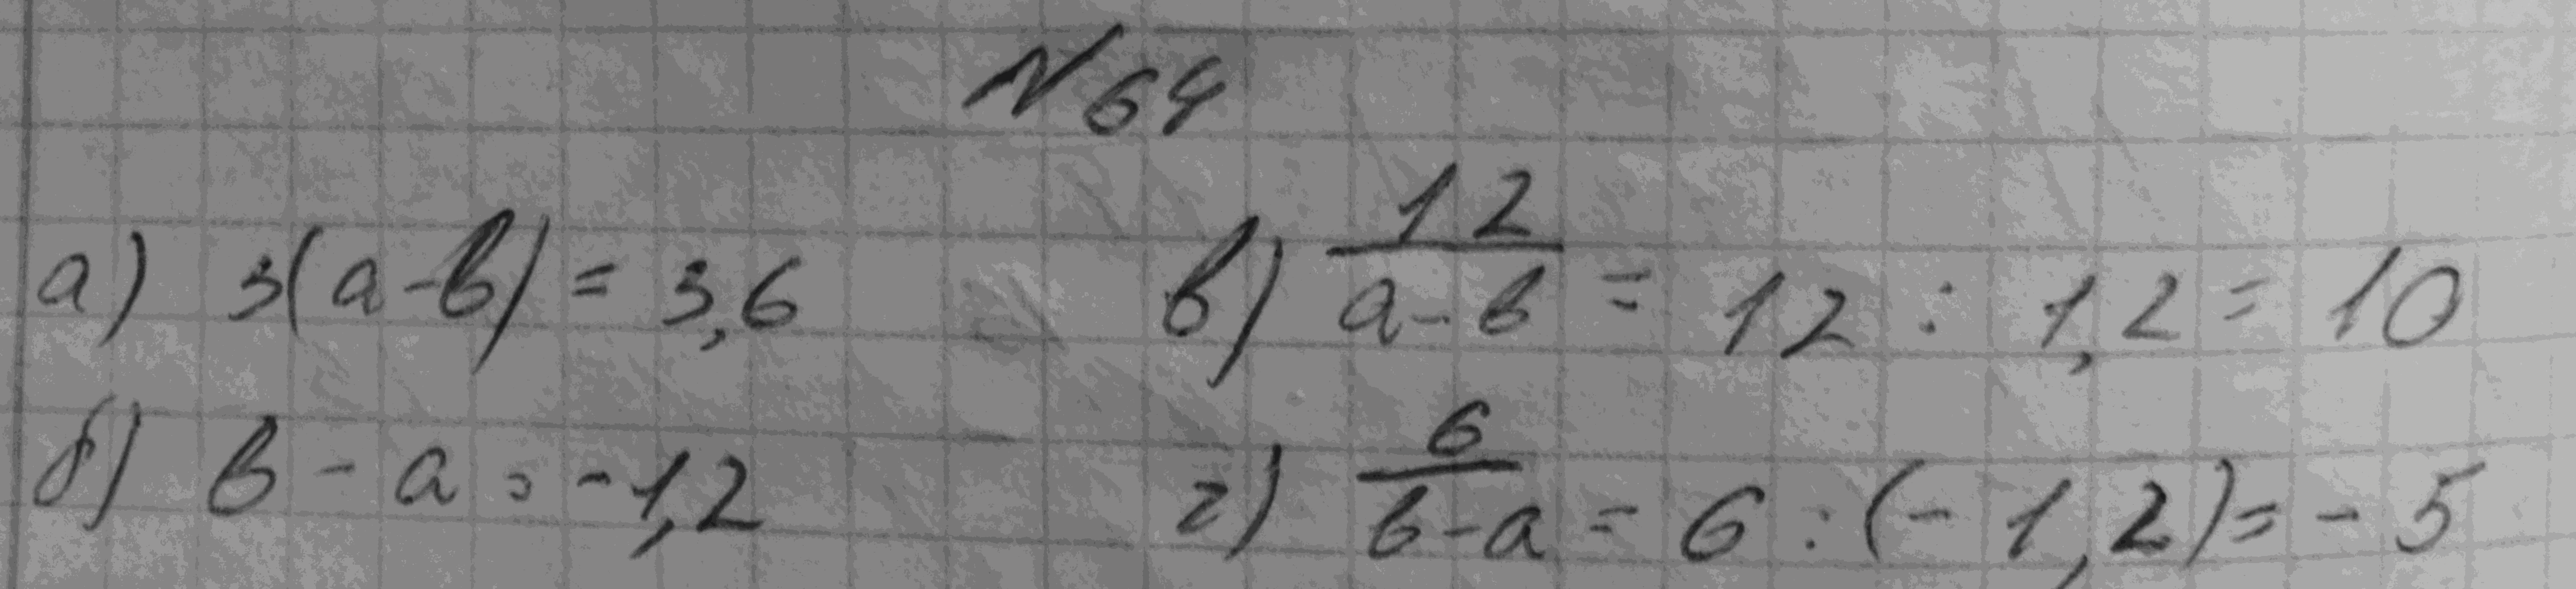 №64
а) 3(a-b) = 3,6
в) 12/(a-b) = 12 : 1,2 = 10
б) b - a = -1,2
г) 6/(b-a) = 6 : (-1,2) = -5